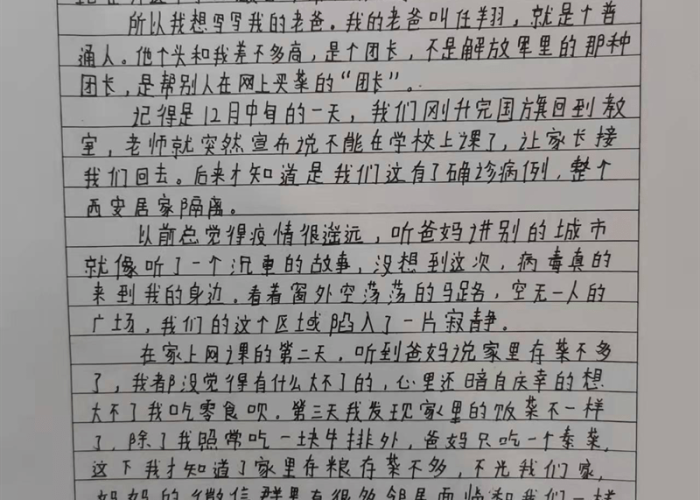 所以我想写写我的老爸。我的老爸叫任翔，就是个普
通人。他个头和我差不多高，是个团长，不是解放军里的那种
团长，是帮别人在网上买菜的“团长”。
记得是12月中旬的一天，我们刚升完国旗回到教
室，老师就突然宣布说不能在学校上课了，让家长接
我们回去。后来才知道是我们这有了确诊病例，整个
西安居家隔离。
以前总觉得疫情很遥远，听爸妈讲别的城市
就像听了一个沉重的故事，没想到这次，病毒真的
来到我的身边，看着窗外空荡荡的马路，空无一人的
广场，我们的这个区域陷入了一片寂静。
在家上网课的第二天，听到爸妈说家里存菜不多
了，我都没觉得有什么大不了的，心里还暗自庆幸的想
大不了我吃零食呗，第三天我发现家里的饭菜不一样
了，除了我照常吃一块牛排外，爸妈只吃一个素菜，
这下我才知道了家里存粮存菜不多，不光我们家，
妈妈的微信群里有很多邻居